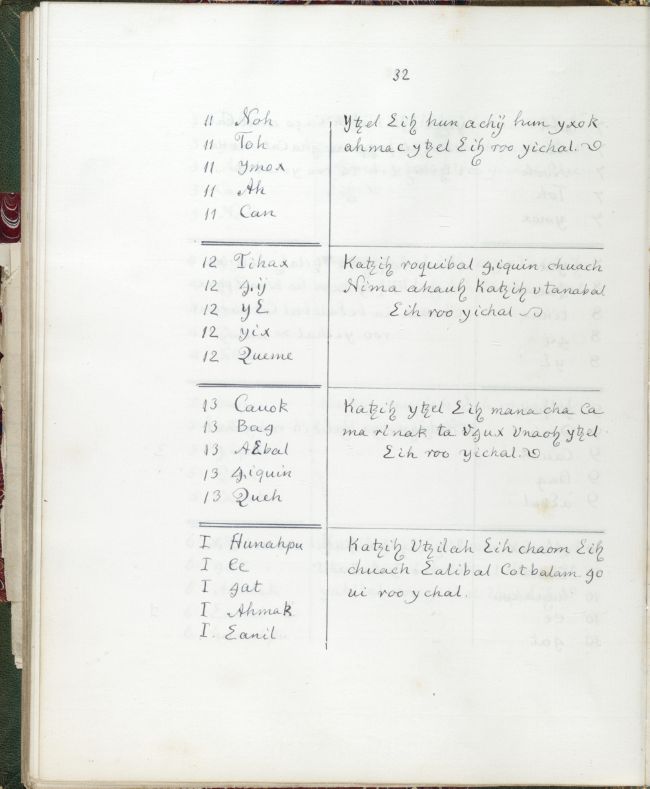 32
11 Noh
11 Toh
11 ymox
11 Ah
11 Can
Ytzel Eih hun achÿ hum yxok
ahmac ytzel Eih roo yichal.
12 Tihax
12 g,ij
12 yE
12 yix
12 Queme
Katzih roquibal g,iquin chuach
Nima ahauh Katzih vtanabal
Eih roo yichal
13 Cauok
13 Bag
13 AEbal
13 g,iquin
13 Queh
Katzih ytzel Eih mana cha Ca
ma rinak ta Vgux Vnaoh ytzel
Eih roo yichal.
I Hunahpu
I Ee
I gat
I Ahmak
I. Eanil
Katzih Vtzilah Eih chaom Eih
chuach Ealibal Cotbalam go
ui roo ychal.